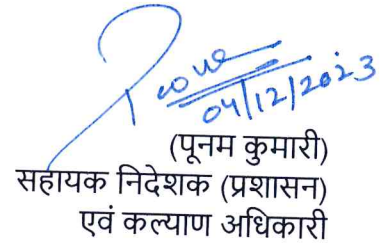 04/12/2023
(पूनम कुमारी)
सहायक निदेशक (प्रशासन)
एवं कल्याण अधिकारी